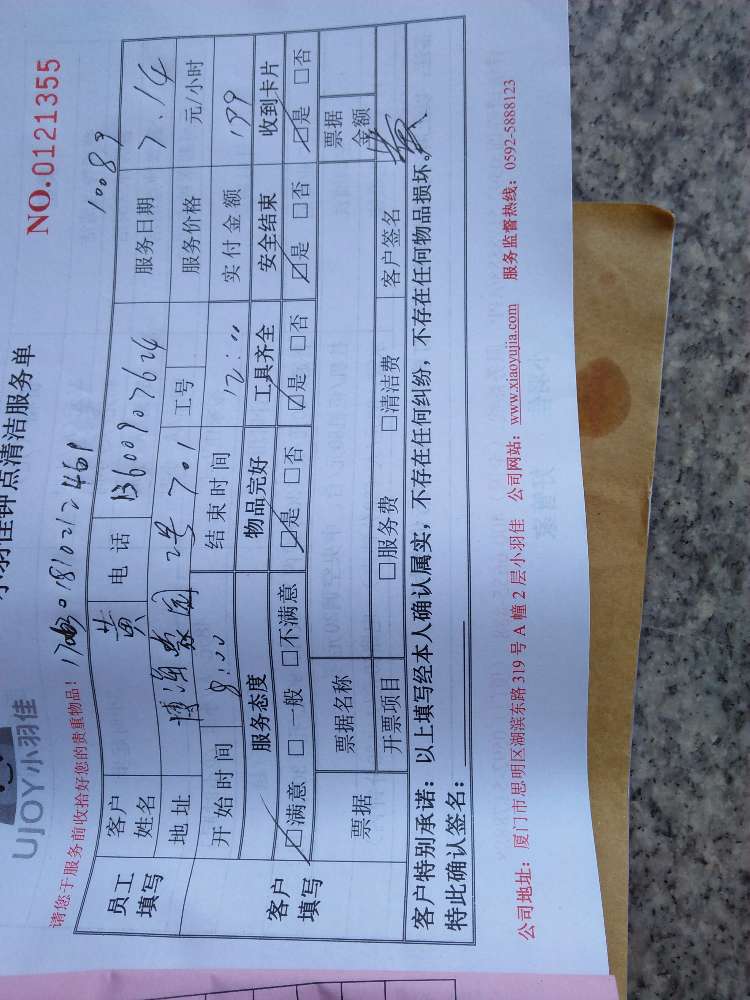 小羽佳钟点清洁服务单
UJOY小羽佳
NO.0121355
请您于服务前收拾好您的贵重物品！
10089
员工填写 客户姓名 黄 电话 13600907624 服务日期 7.14
地址 2号701 工号 服务价格 元/小时
开始时间 8:00 结束时间 12:00 实付金额 199
客户填写 服务态度 物品完好 工具齐全 安全结束 收到卡片
☑满意 □一般 □不满意 ☑是 □否 ☑是 □否 ☑是 □否 ☑是 □否
票据 票据名称 票据金额
开票项目 □服务费 □清洁费 客户签名
客户特别承诺：以上填写经本人确认属实，不存在任何纠纷，不存在任何物品损坏。
特此确认签名：
公司地址：厦门市思明区湖滨东路319号A幢2层小羽佳 公司网站：www.xiaoyujia.com 服务监督热线：0592-5888123